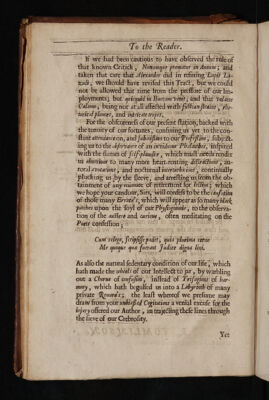 To the Reader.
If we had been cautious to have observed the rule of
that known Critick, Nonumque prematur in annum; and
taken that care that Alexander did in refining
we should have revised this Tract, but we could
not be allowed that time from the pressure of our im-
ployments; but quicquid in buccam venit, and that
Calamo, being not at all affected with
and intricate
For the obscureness of our present station, backed with
the tenuity of our fortunes, confining us yet to the con-
stant attendance, and subjection to our Profession, subject-
ing us to the of an occidous inspired
with the fumes of self-plaudite, which must needs render
us to many more heart-renting distractions, in-
toral vexations, and nocturnal continually
plucking us by the sleeve, and arresting us from the ob-
tainment of any moment of retirement for leisure; which
we hope your candour, Sirs, will consess to be the occasion
of those many Errata's, which will appear as so many black
patches upon the foyl of our Physiognomie, to the observa-
tion of the austere and curious, often meditating on the
Poets confession;
Cum relego, scripsisse pudet, quia plurima cerno
Me quoque qui feceram Judice digna lini.
As also the natural sedentary condition of our life, which
hath made the wheels of our Intellect to jar, by warbling
out a Chorus of confusion, instead of of har-
mony, which hath beguiled us into a Labyrinth of many
private the least whereof we presume may
draw from your Cogitations a venial excuse for the
injury offered our Author, in trajecting these lines through
the sieve of our Crebrosity.
Yet